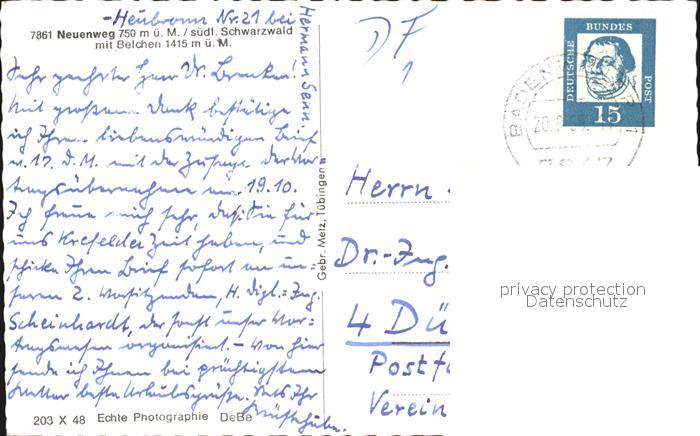 -Heubronn Nr. 21 bei
Hermann Senn
7861 Neuenweg 750 m ü. M. / südl. Schwarzwald
mit Belchen 1415 m ü. M.
Sehr geehrter Herr Dr.
Mit großem Dank bestätige
ich Ihren liebenswürdigen Brief
v. 17. d. M. mit der Zusage der Vor=
tragsübernahme am 19.10.
Ich freue mich sehr, daß Sie für
uns Krefelder Zeit haben, und
schicke Ihren Brief sofort an un=
seren 2. Vorsitzenden, H. Dipl.-Ing.
Scheinhardt, der sonst unser Vor=
tragswesen organisiert. - Von hier
sende ich Ihnen bei prächtigstem
Wetter beste Urlaubsgrüße. Stets Ihr
203 X 48 Echte Photographie DeBe
Gebr. Metz, Tübingen
DF
DEUTSCHE
BUNDES
POST
15
Herrn
Dr.-Ing.
4 Dü
Postf
Verein
privacy protection
Datenschutz